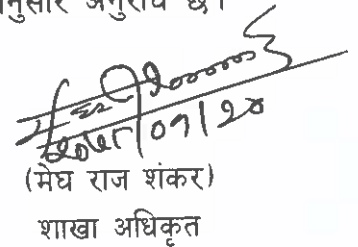 नुसार अनुरोध छ।
(मेघ राज शंकर)
शाखा अधिकृत